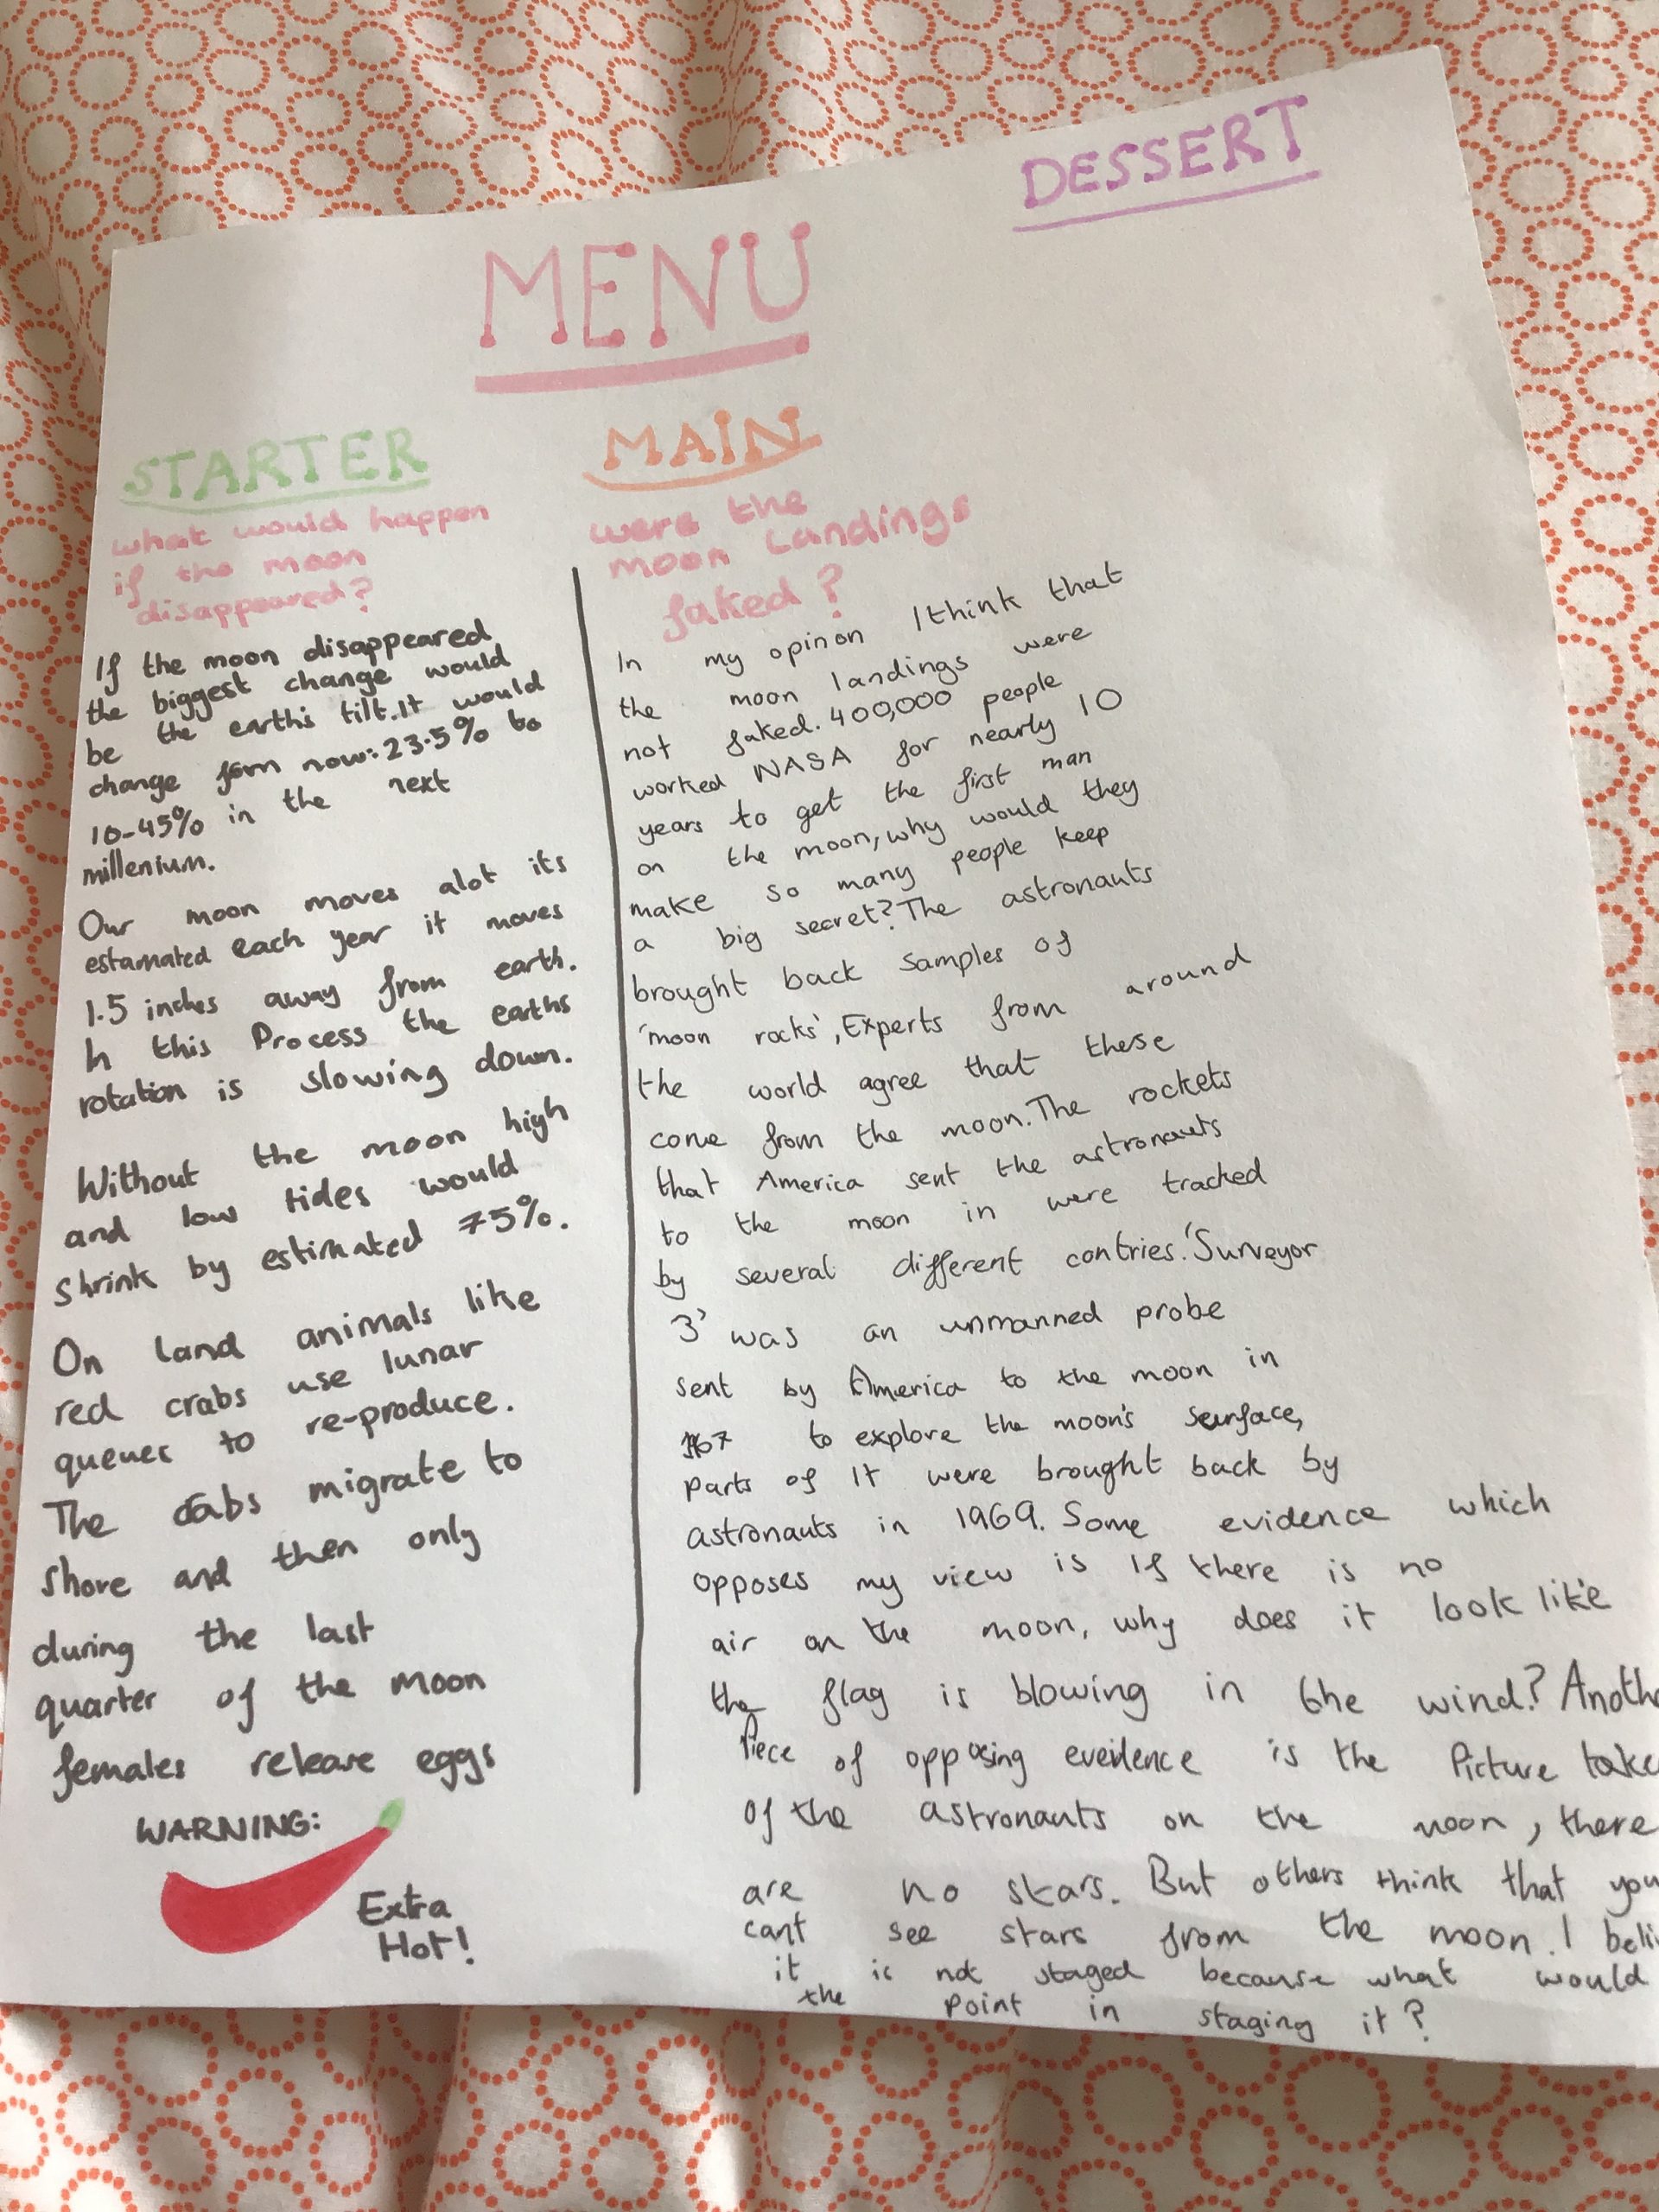 DESSERT
MENU
STARTER
what would happen
if the moon
disappeared?
If the moon disappeared
the biggest change would
be the earth's tilt. It would
change form now: 23.5% to
10-45% in the next
millenium.
Our moon moves alot its
estamated each year it moves
1.5 inches away from earth.
In this Process the earths
rotation is slowing down.
Without the moon high
and low tides would
shrink by estimated 75%.
On land animals like
red crabs use lunar
queues to re-produce.
The crabs migrate to
shore and then only
during the last
quarter of the moon
females release eggs
WARNING:
Extra
Hot!
MAIN
were the
moon Landings
faked?
In my opinon I think that
the moon landings were
not faked. 400,000 people
worked NASA for nearly 10
years to get the first man
on the moon, why would they
make so many people keep
a big secret? The astronauts
brought back samples of
'moon rocks', Experts from around
the world agree that these
come from the moon. The rockets
that America sent the astronauts
to the moon in were tracked
by several different contries. 'Surveyor
3' was an unmanned probe
sent by America to the moon in
to explore the moon's surface,
parts of it were brought back by
astronauts in 1969. Some evidence which
opposes my view is If there is no
air on the moon, why does it look like
the flag is blowing in the wind? Anoth
Piece of opposing eveidence is the Picture take
of the astronauts on the moon, there
are no stars. But others think that you
cant see stars from the moon. I beli
it is not staged because what would
the point in staging it?